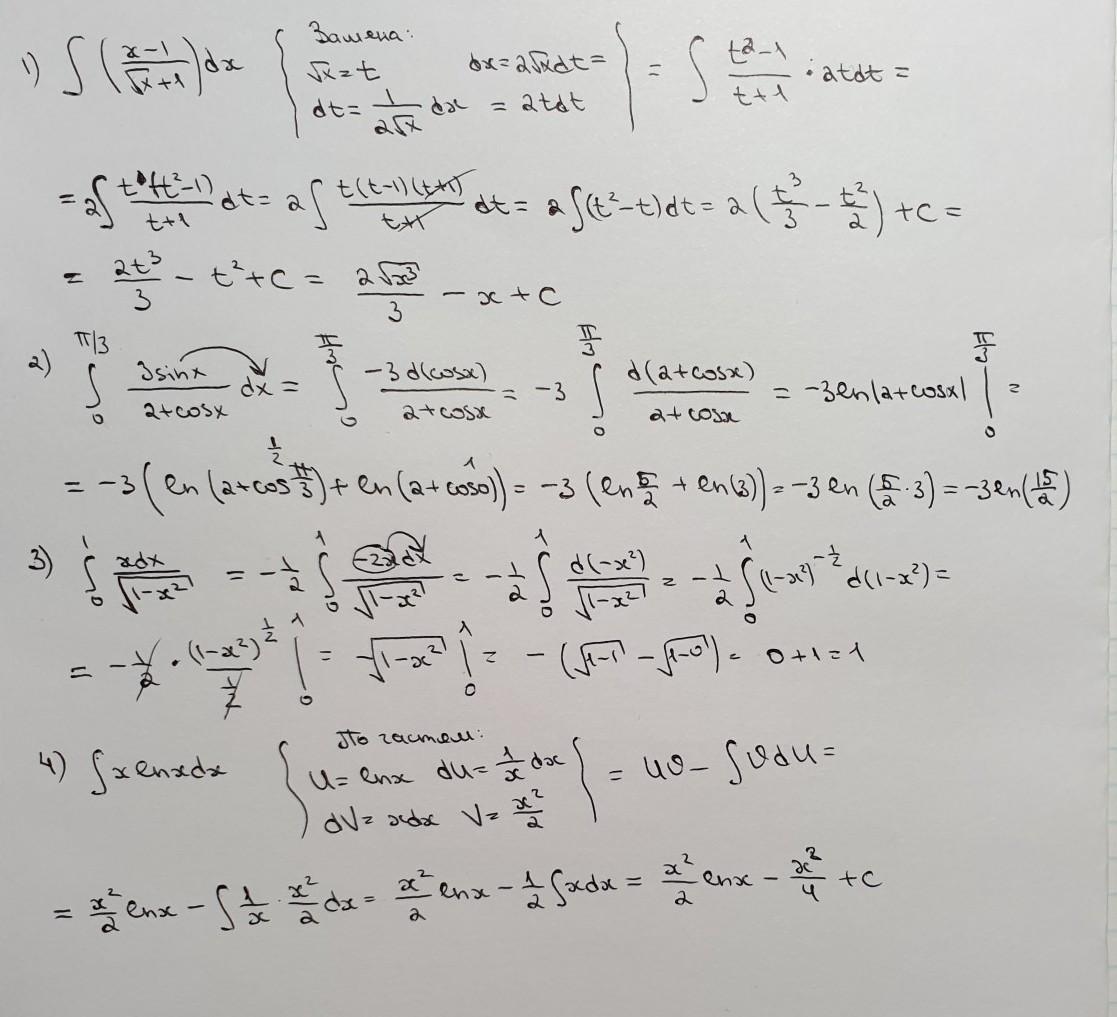 1) ∫ (x-1/√x+1) dx { Замена: √x = t dx = 2√x dt = dt = 1/2√x dx = 2t dt } = ∫ t²-1/t+1 · 2t dt =
= 2∫ t(t²-1)/t+1 dt = 2∫ t(t-1)(t+1)/t+1 dt = 2∫(t²-t)dt = 2(t³/3 - t²/2) + C =
= 2t³/3 - t² + C = 2√x³/3 - x + C
2) ∫₀^π/3 3sinx/2+cosx dx = ∫₀^π/3 -3d(cosx)/2+cosx = -3 ∫₀^π/3 d(2+cosx)/2+cosx = -3ln|2+cosx| |₀^π/3 =
= -3(ln(2+cos π/3) + ln(2+cos0)) = -3(ln 5/2 + ln(3)) = -3ln(5/2 · 3) = -3ln(15/2)
3) ∫₀¹ xdx/√1-x² = -1/2 ∫₀¹ -2xdx/√1-x² = -1/2 ∫₀¹ d(-x²)/√1-x² = -1/2 ∫₀¹ (1-x²)^-1/2 d(1-x²) =
= -1/2 · (1-x²)^1/2 / 1/2 |₀¹ = -√1-x² |₀¹ = -(√1-1 - √1-0) = 0+1=1
4) ∫x lnx dx { По частям: U = lnx dU = 1/x dx dV = xdx V = x²/2 } = UV - ∫VdU =
= x²/2 lnx - ∫ 1/x · x²/2 dx = x²/2 lnx - 1/2 ∫xdx = x²/2 lnx - x²/4 + C